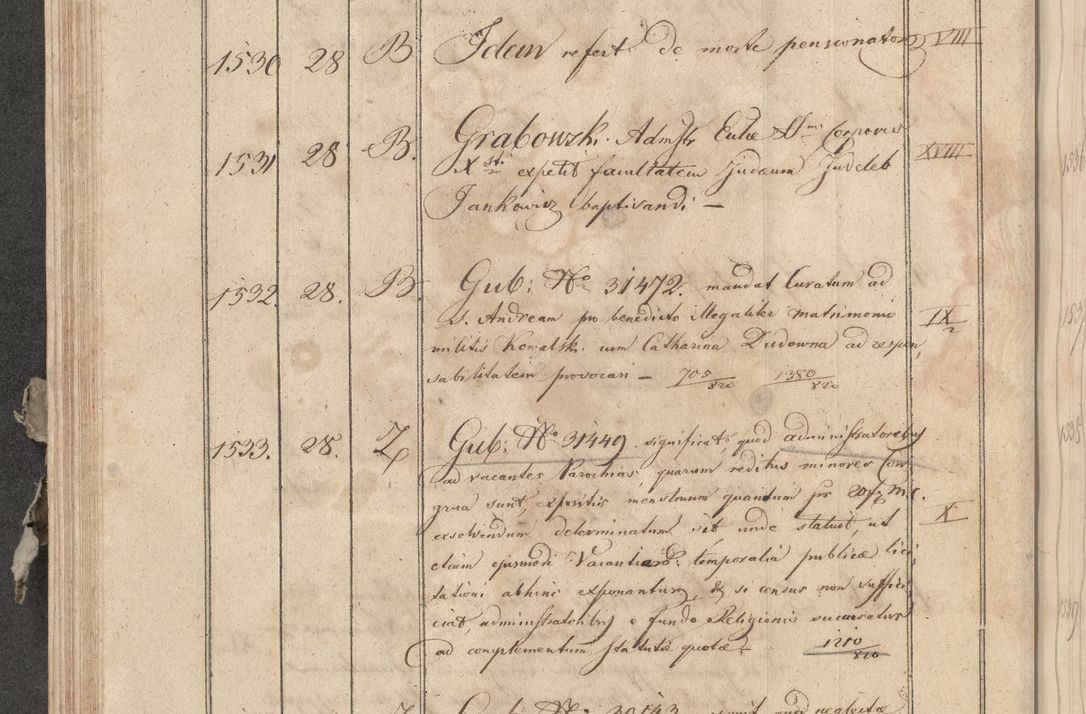 1530 28 B Idem refert de morte pensionator XVIII
1531 28 B. Grabowsk. Admstr Ecclae SSmi Corporis XVIII
Xsti expetit facultatem Judaeum Judeleb
Jankowicz baptisandi —
1532. 28. B. Gub: No 31472. mandat Curatum ad
S. Andream pro benedicto illegaliter matrimonio IX/2
militis Kowalsk. cum Catharina Dudowna ad respon,
sabilitatem provocari — 705/820 1380/820
1533. 28. Z Gub: No 31449. significat, quod administratoribus
ad vacantes Parochias, quarum reditus minores Con
grua sunt, expositis menstruum quantum pr 20 f M.C.
exsolvendum determinatum sit unde statuit, ut X
etiam ejusmodi Vacantiar. temporalia publicae lici,
tationi abhinc exponantur, & si census non suffi
ciat, administratoribus e fundo Religionis succuratur
ad complementum statutae quotae — 1210/820
Gub: No 30143
neglectae